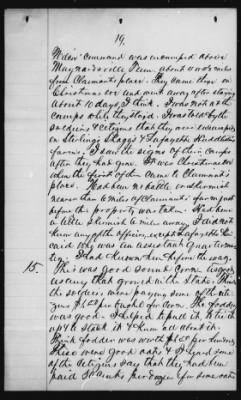 19.
command was encamped above
Maynardsville Tenn. about
from Claimants place. They came there on
Christmas and went away after staying
about 10 days, I think. I was not at the
camps while they stayed. I was told by the
soldiers & citizens that they were encamped
on Sterling Skaggs & Lafayette
farms. I saw the signs of their camps
after they had gone. It was Christmas
when the first of them came to Claimant's
place. Had been no battle or skirmish
nearer than 10 miles of Claimant's farm just
before this property was taken. Had been
a little skirmish 10 miles away. I did not
know any of the officers, except Lafayette
said why was an assistant Quartermas-
ter. I had known him before the war.
15. This was good sound Corn, as good
as any that ground in the State. I think
the soldiers were paying some of the citi-
zens $1.00 per bushel for corn. The fodder
was good - I helped to pull it, to tie it
up & to stack it & knew all about it.
I think fodder was worth $1.00 per hundred
These were good oats & I heard some
of the citizens say that they had been
paid 50 cents per dozen for some oats